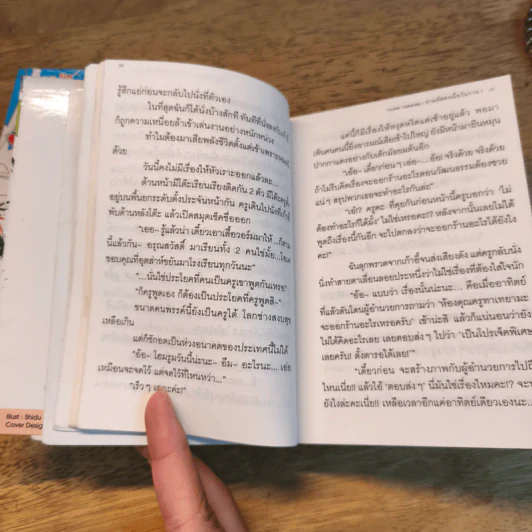 รู้สึกแย่ก่อนจะกลับไปนั่งที่ตัวเอง
ในที่สุดฉันก็ได้นั่งบ้างสักที ทันทีที่นั่งลง
ก็ถูกความเหนื่อยล้าเข้าเล่นงานอย่างหนักหน่วง
ทำไมต้องมาเสียพลังชีวิตตั้งแต่เช้า
ด้วย
วันนี้คงไม่มีเรื่องให้หัวเราะออกแล้วละ...
ด้านหน้ามีโต๊ะเรียนเรียงติดกัน 2 ตัว มีโต๊ะครู
อยู่บนพื้นยกระดับตั้งประจันหน้ากัน ครูเดินไปนั่งที่
ทับด้านหลังโต๊ะ แล้วเปิดสมุดเช็คชื่อออก
"เออ- รู้แล้วน่า เดี๋ยวเอาเสื้อวอร์มมาให้...ก็ตาม
นี้แล้วกัน- อรุณสวัสดิ์ มาเรียนทั้ง 2 คนใช่มั้ย...
ขอบคุณที่อุตส่าห์ขยันมาโรงเรียนทุกวันนะ"
"...นั่นใช่ประโยคที่คนเป็นครูเขาพูดกันเหรอ"
"ก็ครูพูดเอง ก็ต้องเป็นประโยคที่ครูพูดสิ-"
ขนาดคนพรรค์นี้ยังเป็นครูได้ โลกช่างสงบสุข
เหลือเกิน
แต่ก็ชักอดเป็นห่วงอนาคตของประเทศนี้ไม่ได้
"อ้อ- โฮมรูมวันนี้น่ะนะ- อืม- อะไรนะ... เอ่อ
เหมือนจะจดไว้ แต่จดไว้ที่ไหนหว่า..."
"เร็ว ๆ เถอะค่ะ!"
แค่นี้ก็มีเรื่องให้หงุดหงิดแต่เช้าอยู่แล้ว พอมา
เห็นคนคนนี้ยิ่งอารมณ์เสียเข้าไปใหญ่ ยังมีหน้ามายืนหมุน
ปากกาแดงอย่างกับเด็กมัธยมต้นอีก
"เอ้อ- เดี๋ยวก่อน ๆ เอ่อ-... อ้อ! จริงด้วย จริงด้วย
ถ้าไม่รีบคิดเรื่องจะออกร้านอะไรตอนวัฒนธรรมต้องซวย
แน่ ๆ สรุปพวกเธอจะทำอะไรกันล่ะ"
"เอ๋!? ครูคะ ที่คุยกันก่อนหน้านี้ครูบอกว่า 'ไม่
ต้องทำอะไรก็ได้มั้ง' ไม่ใช่เหรอคะ!? หลังจากนั้นเลยไม่ได้
พูดถึงเรื่องนี้กันอีก จะไปตกลงว่าจะออกร้านอะไรได้ยังไง
คะ!"
ฉันลุกพรวดจากเก้าอี้จนส่งเสียงดัง แต่ครูกลับนั่ง
นิ่งทำสายตาเลื่อนลอยประหนึ่งว่าไม่ใช่เรื่องที่ต้องใส่ใจนัก
"อ้อ- แบบว่า เรื่องนั้นน่ะนะ... คือเมื่ออาทิตย์
ที่แล้วดันโดนผู้อำนวยการถามว่า 'ห้องคุณครูทาเทยามะ
จะออกร้านอะไรเหรอครับ' เข้าน่ะสิ แล้วก็แน่นอนว่ายัง
ไม่ได้คิดอะไรเลย เลยตอบส่ง ๆ ไปว่า 'เป็นโปรเจ็คพิเศษ
เลยครับ! ตั้งตารอได้เลย!'"
"เดี๋ยวก่อน จะสร้างภาพกับผู้อำนวยการไปถึง
ไหนเนี่ย!! แล้วไอ้ 'ตอบส่ง ๆ' นี่มันใช่เรื่องไหมคะ!? จะ
ยังไงล่ะคะเนี่ย!! เหลือเวลาอีกแค่อาทิตย์เดียวเองนะ...
Illust : Shidu
Cover Desig